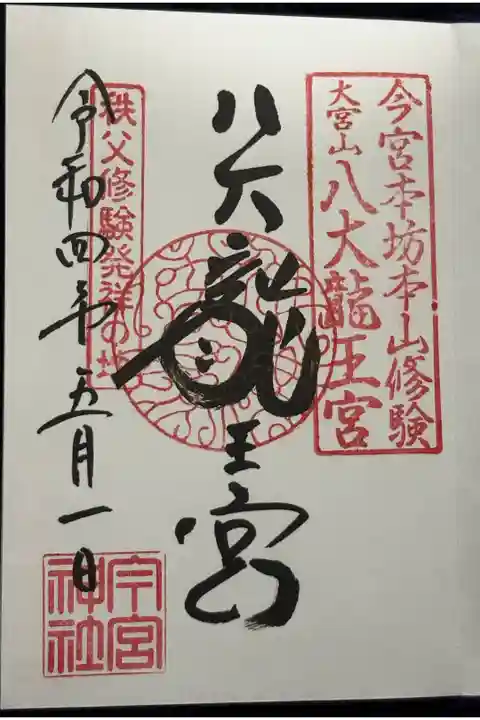 今宮本坊本山修験
大宮山八大龍王宮
八大龍王宮
秩父修験発祥の地
令和四年五月一日
今宮
神社